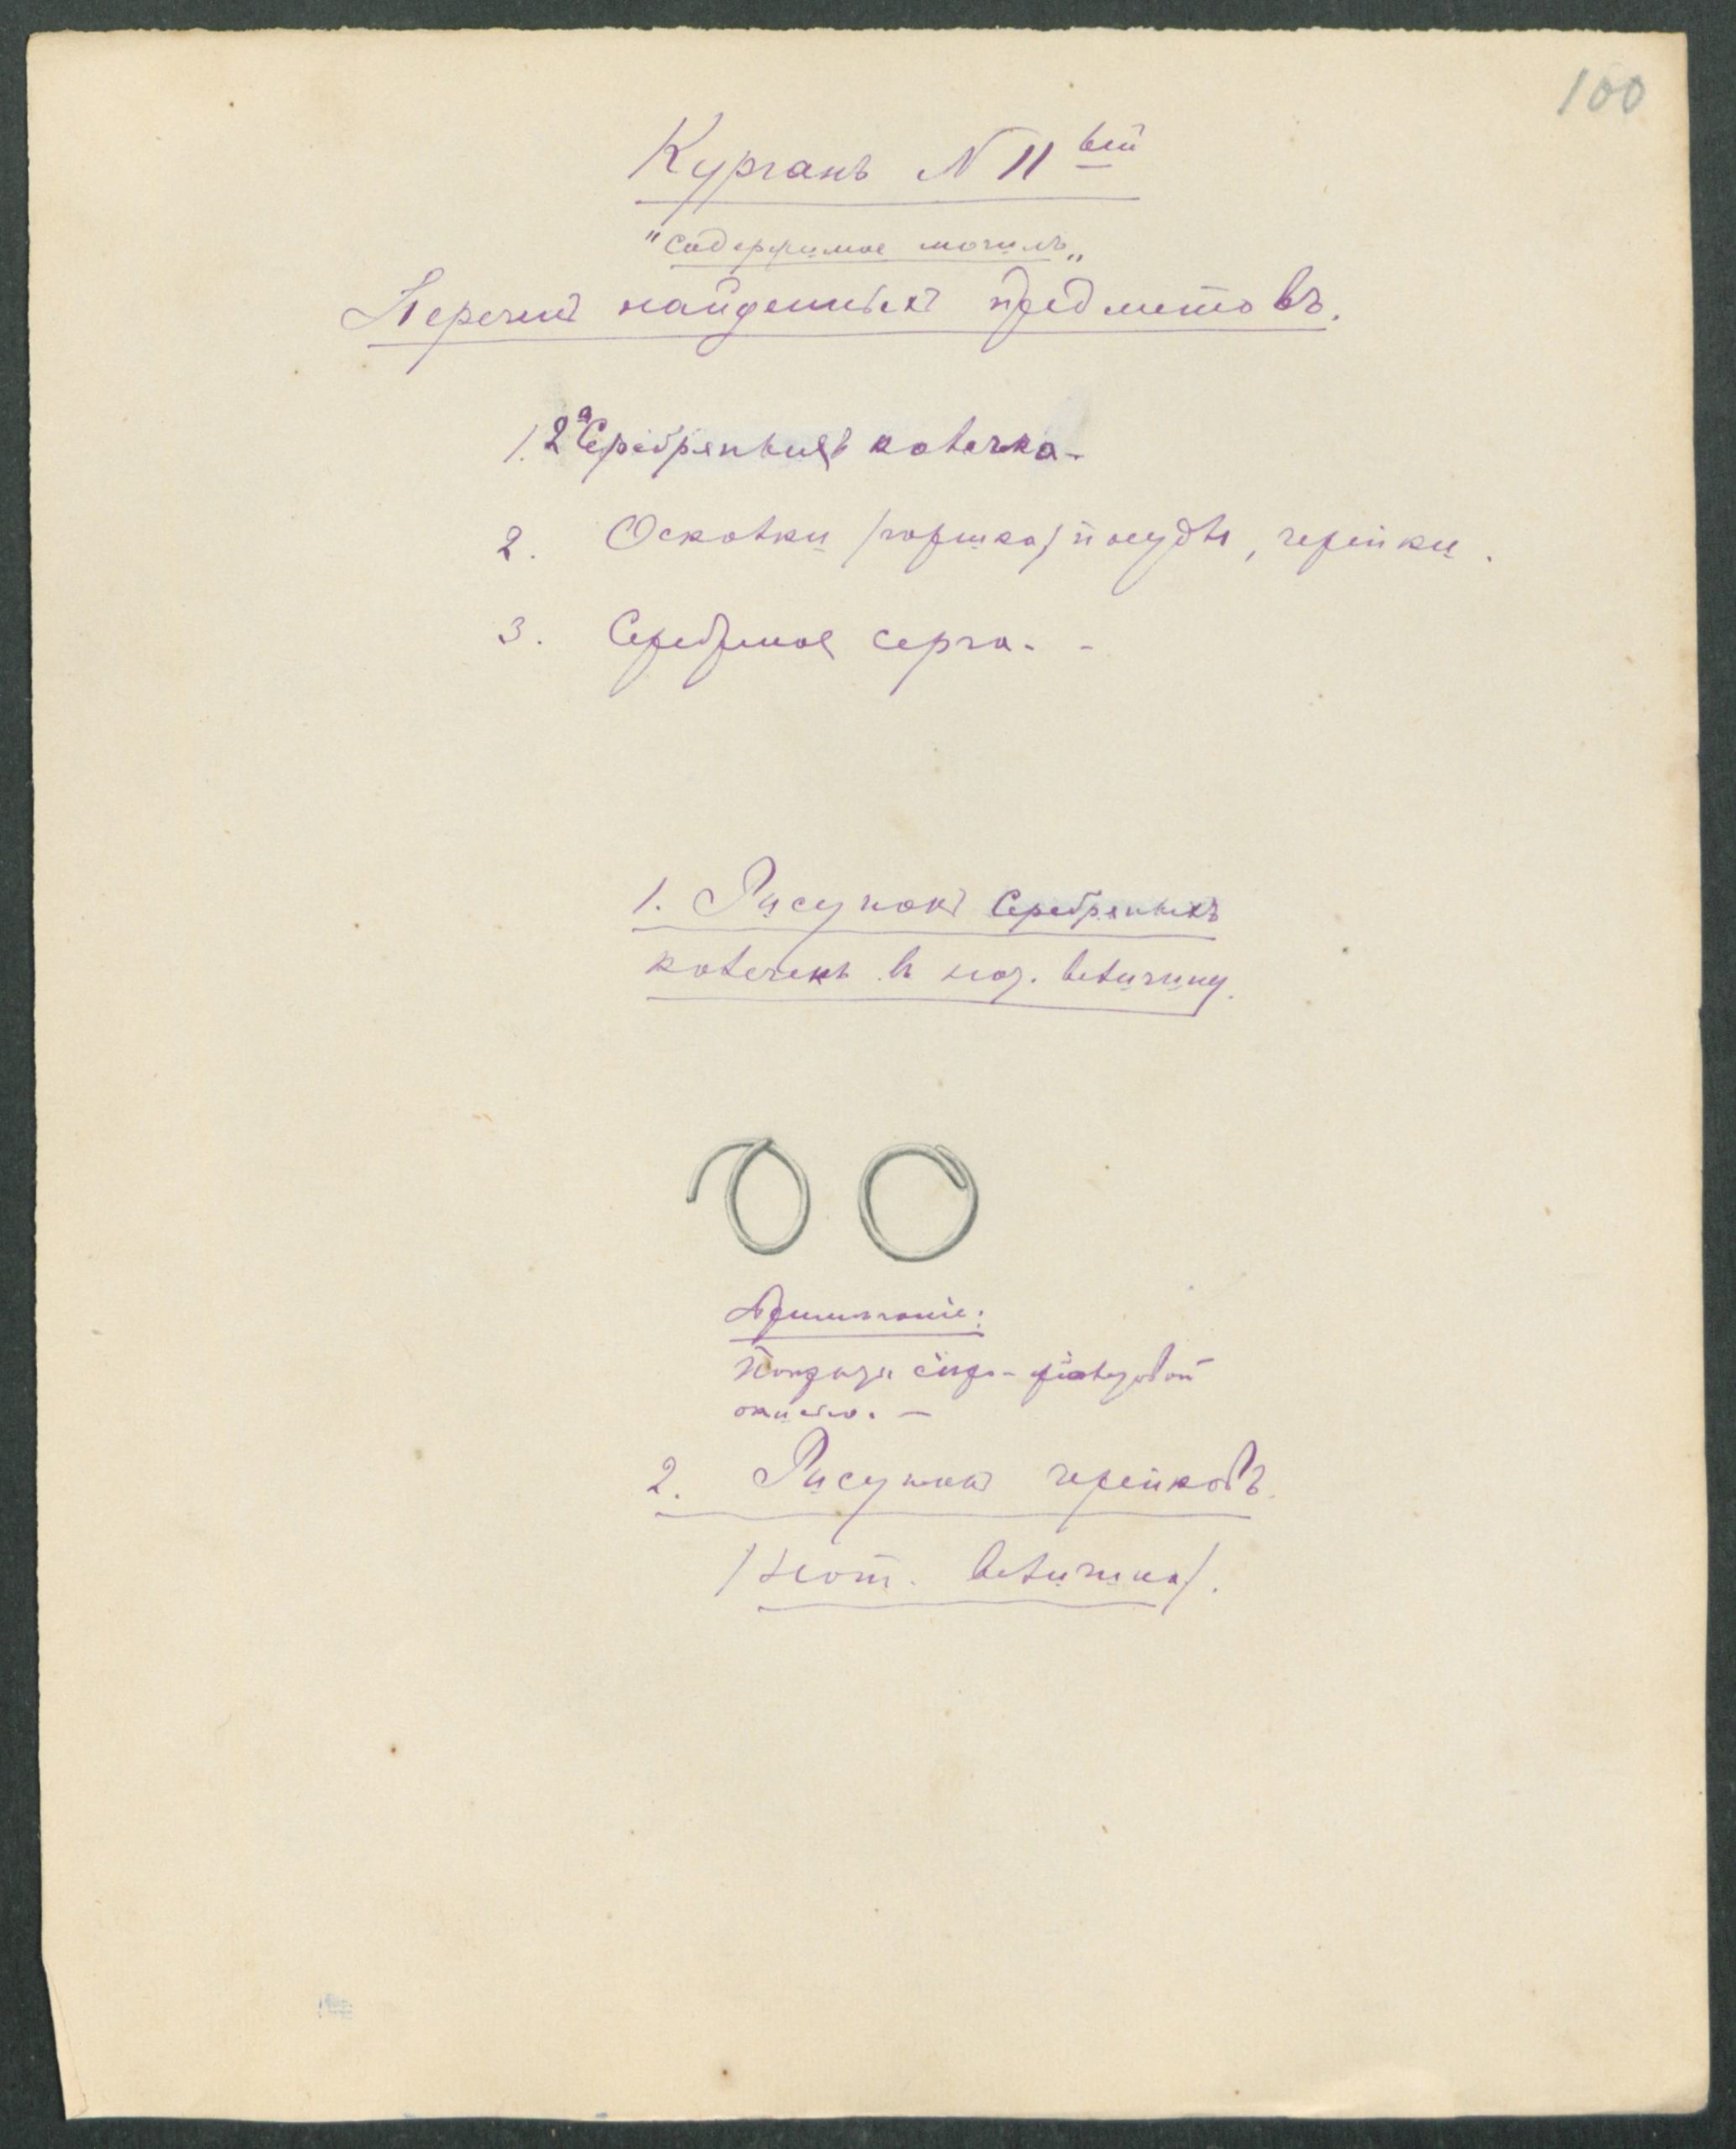 100
Курганъ N 11 ый
"Содержимое могилъ„
Перечень найденныхъ предметовъ.
1. 2а Серебряныхъ колечка.-
2. Осколки /горшка/ посуды, черепки.
3. Серебряная серга. -
1. Рисунокъ Серебряныхъ
колечекъ въ нат. величину.
Примѣчаніе:
окисью. —
2. Рисунокъ черепковъ
/нат. величина/.